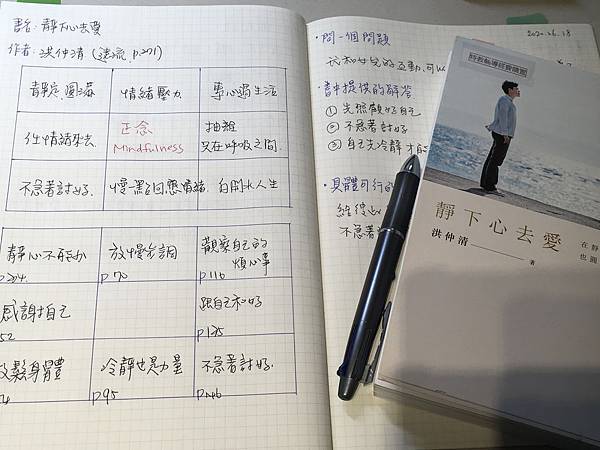 書名:靜下心去愛
作者:洪仲清(遠流, p.271)
靜定、圓滿 情緒壓力 專心過生活
任情緒來去. 正念 Mindfulness 抽離 只在呼吸之間.
不急著討好. 慢一點回應情緒. 自開水人生
靜心不再 p204. 放慢步調 p70 觀察自己的煩心事 p116
感謝自己 52 跟自己和好 p135
放鬆身體 冷靜也是力量 p95 不急著討好.
2020.06.18
·問一個問題
我和女兒的互動,可以
·書中提供的解答
① 先照顧好自己
② 不急著討好
③ 自己先冷靜才能
·具體可行的
不急著
靜下心去愛
洪仲清 著
在靜
也圓